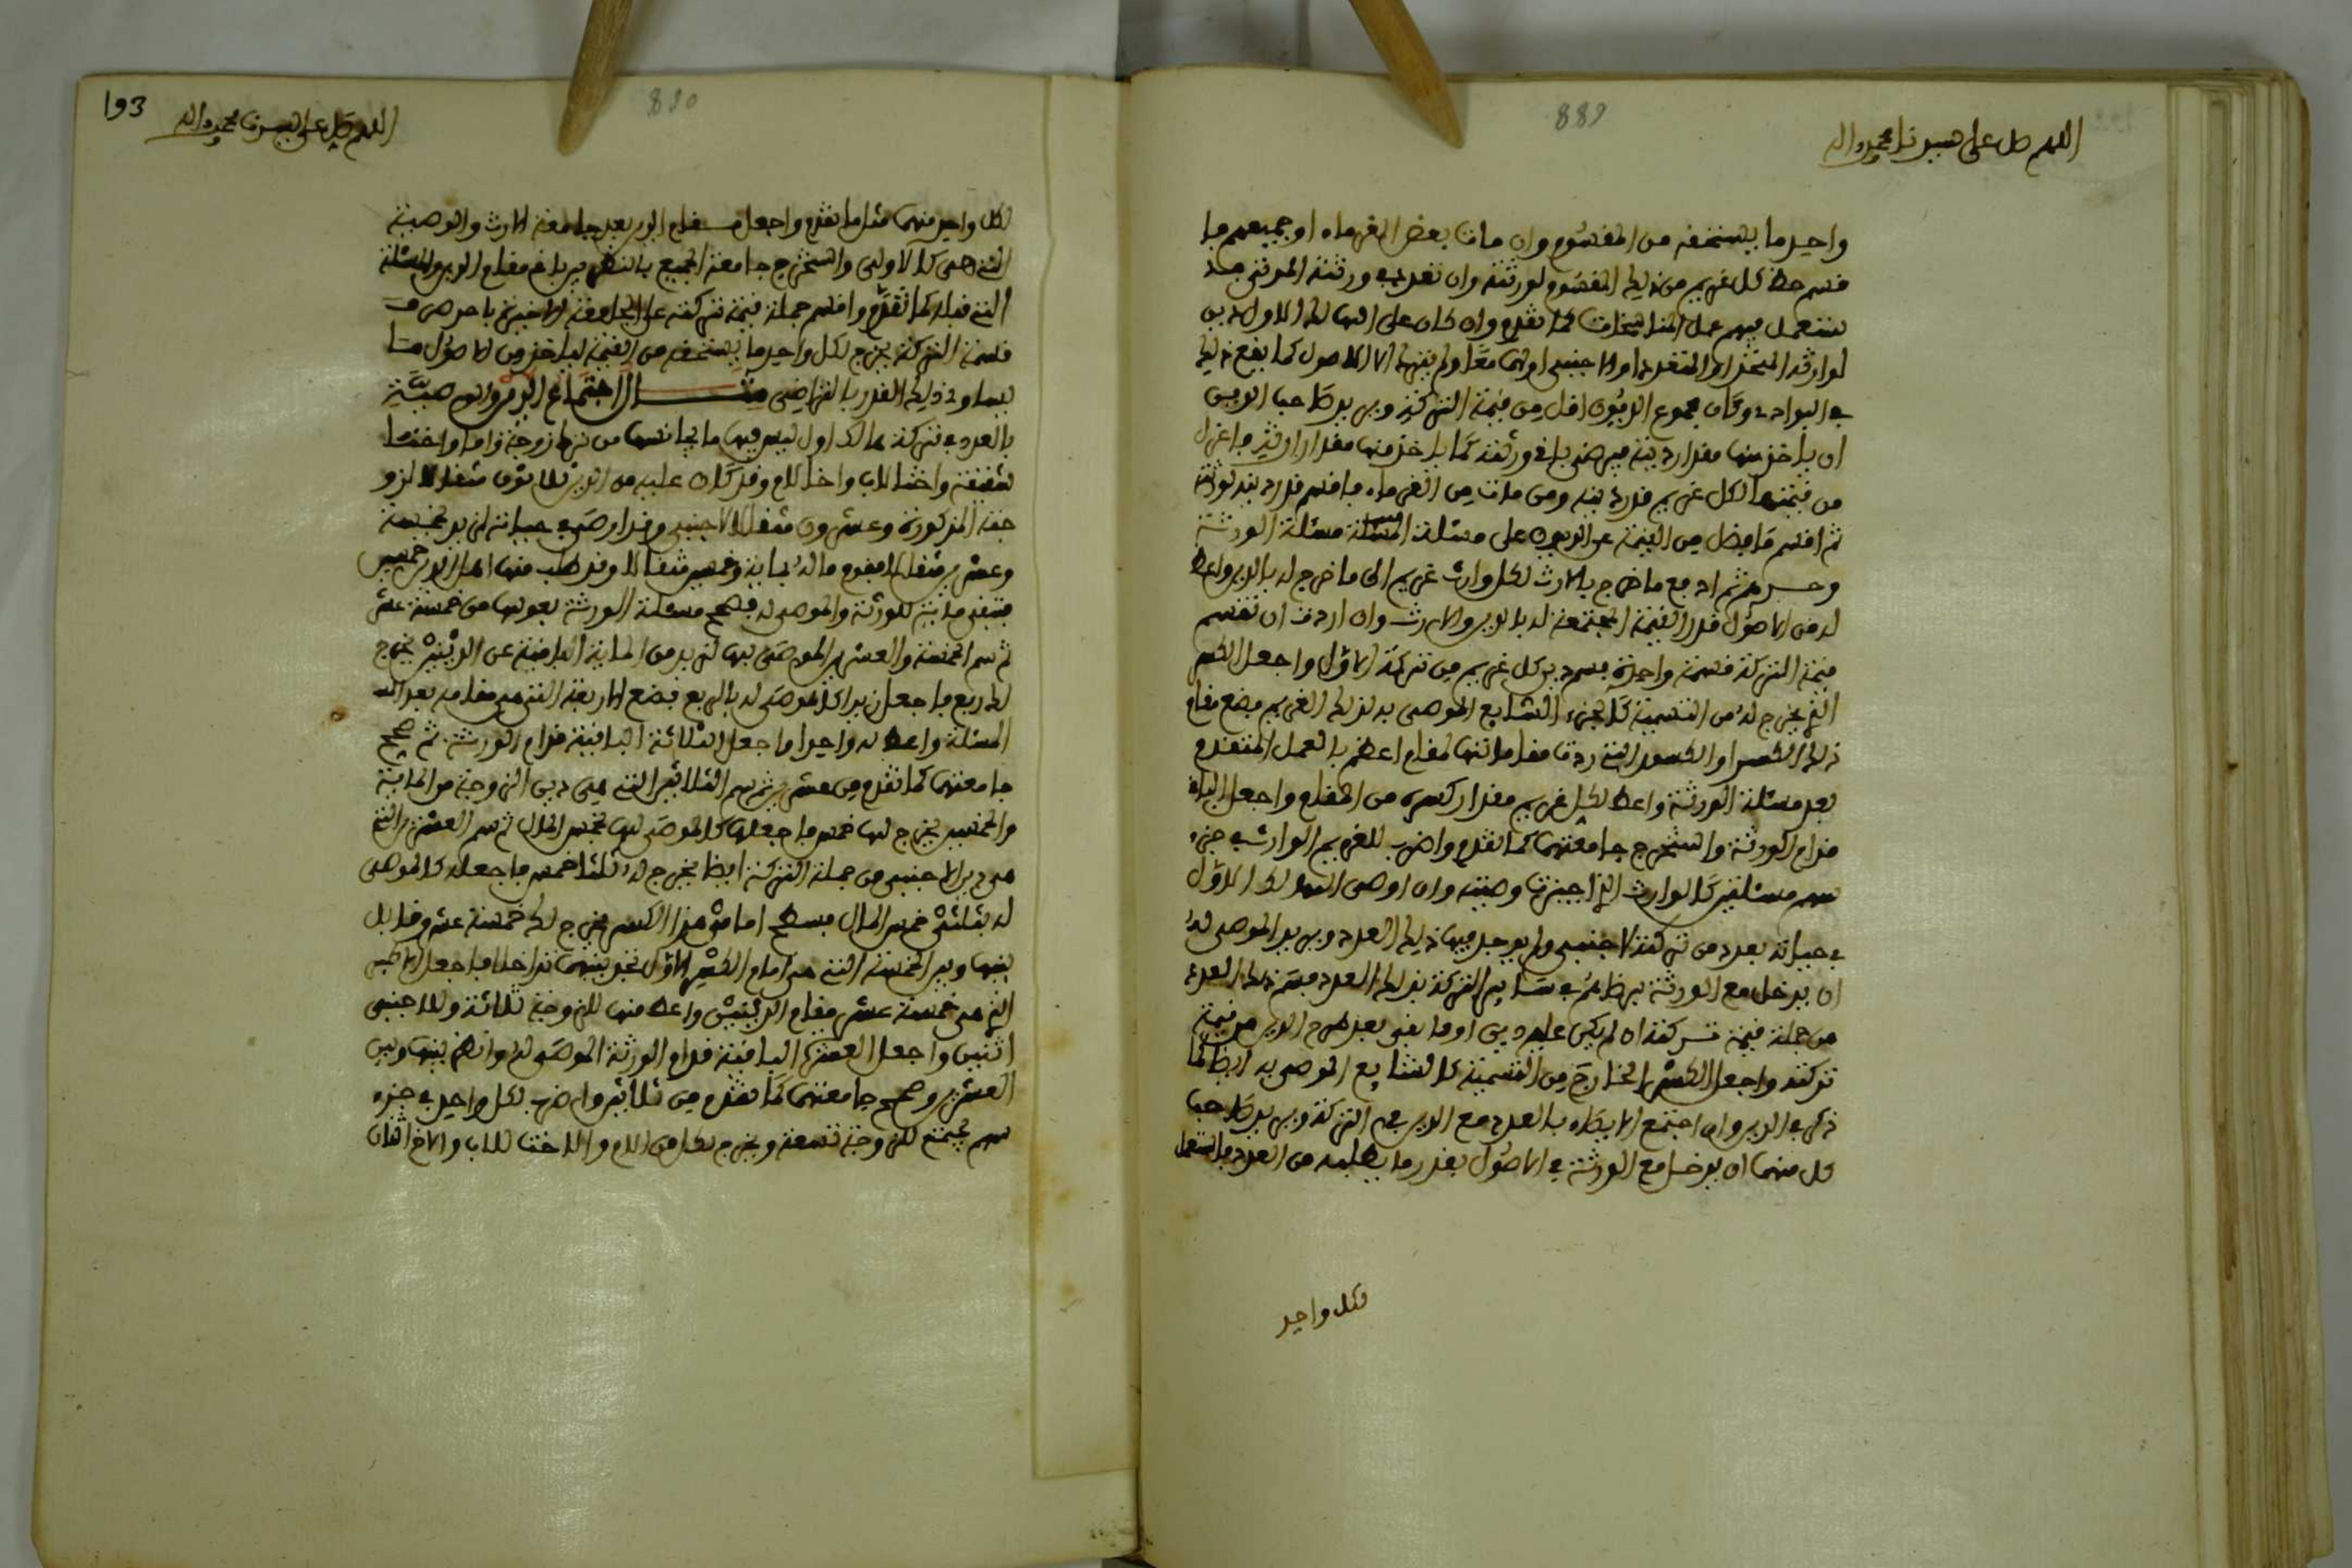 889
اللهم صل على سيدنا محمد واله
واحد ما يستحقه من المقسوم وان مات بعض الغرماء او جميعهم فا
قسم حظ كل غريم من ذلك المقسوم لورثته وان تعدد ورثة الموتى منهم
فتعمل فيهم عمل المناسخات كما تقدم وان كان على الهالك الاول دين
لوارثه المتحد او المتعدد او الاجنبي او لهما معا ولم ينتهك الا الاصول كما يقع ذلك
في البوادي وكان مجموع الديون اقل من قيمة التركة ويريد صاحب الدين
ان ياخذ منها مقدار دينه فيرضى باقي ورثته كما ياخذ منها مقدار ارثه فاعزل
من قيمتها لكل غريم قدر دينه ومن مات من الغرماء فاقسم قدر دينه لورثته
ثم اقسم ما فضل من القيمة عن الديون على مسئلة مسئلة الورثة
وحدهم ثم اجمع ما خرج بالارث لكل وارث غريم الى ما خرج له بالدين واعط
له من الاصول قدر القيمة المجتمعة له بالدين والارث وان اردت ان تقسم
قيمة التركة قسمة واحدة فسم دين كل غريم من تركة الاول واجعل الكسر
الذي يخرج له من التسمية كالجزء الشايع الموصى به لذلك الغريم فضع مقام
ذلك الكسر او الكسور التي ردت مقاماتها لمقام اعظم بالعمل المتقدم
بعد مسئلة الورثة واعط لكل غريم مقدار كسره من المقام واجعل الباقي
قدام الورثة واستخرج جامعتهما كما تقدم واضرب للغريم الوارث في جزء
سهم مسئلتين كالوارث الذي اجيزت وصيته وان اوصى الهالك الاول
في حياته بعدد من تركته لاجنبي ولم يوجد فيها ذلك العدد ويريد الموصى له
ان يدخل مع الورثة برضاهم في ساير التركة بذلك العدد فسم ذلك العدد
من جملة قيمة تركته ان لم يكن عليه دين او ما بقي بعد طرح الدين من قيمة
تركته واجعل الكسر الخارج من التسمية كالشايع الموصى به ايضا كما
ذكر في الدين وان اجتمع الايصاء بالعدد مع الدين في التركة ويريد صاحب
كل منهما ان يدخل مع الورثة في الاصول بقدر ما يطلبه من العدد فاستعمل
لكل واحد
193
890
اللهم صل على سيدنا محمد واله
لكل واحد منهما مثل ما تقدم واجعل مقام الدين بعد جامعة الارث والوصية
التي هي كالاولى واستخرج جامعة الجميع بالنظر بين باقي مقام الدين والمسئلة
التي قبله كما تقدم واقسم جملة قيمة تركته على الجامعة الاخيرة باحرص في
قسمة التركة يخرج لكل واحد ما يستحقه من القيمة لياخذ من الاصول ما
يساوي ذلك القدر بالتراضي مثال اجتماع الدين والوصية
بالعدد في تركة هالك اول ليس فيها ما يجانسها من ترك زوجة واما واختا
شقيقة واختا لاب واخا لام وقد كان عليه من الدين ثلاثون مثقالا لزو
جته المذكورة وعشرون مثقالا لاجنبي وقد اوصى في حياته لزيد بخمسة
وعشرين مثقالا فقوم ماله بماية وخمسين مثقالا وقد طلب منها اهل الدين خمسين
فتبقى ماية للورثة والموصى له فصحح مسئلة الورثة بعولها من خمسة عشر
ثم سم الخمسة والعشرين الموصى بها لزيد من الماية الباقية عن الدينين يخرج
لك ربع فاجعل زيدا كالموصى له بالربع فضع الاربعة التي هي مقامه بعد
المسئلة واعط له واحدا واجعل الثلاثة الباقية قدام الورثة ثم صحح
جامعتهما كما تقدم من عشرين ثم سم الثلاثين التي هي دين الزوجة من الماية
والخمسين يخرج لها خمس فاجعلها كالموصى لها بخمس المال ثم سم العشرين التي
هي دين الاجنبي من جملة التركة ايضا يخرج له ثلثا خمس فاجعله كالموصى
له بثلثي خمس المال فبسط امام هذا الكسر يخرج لك خمسة عشر وقابل
بينها وبين الخمسة التي هي امام الكسر الاول تجد بينهما تداخلا فاجعل الاكبر
الذي هي خمسة عشر مقام الدينين واعط منها للزوجة ثلاثة وللاجنبي
اثنين واجعل العشرة الباقية قدام الورثة الموصى له وانظر بينها وبين
العشرين وصحح جامعتهما كما تقدم من ثلاثين واضرب لكل واحد في جزء
سهم يجتمع للزوجة تسعة ويخرج لكل من الام والاخت للاب والاخ اثنان